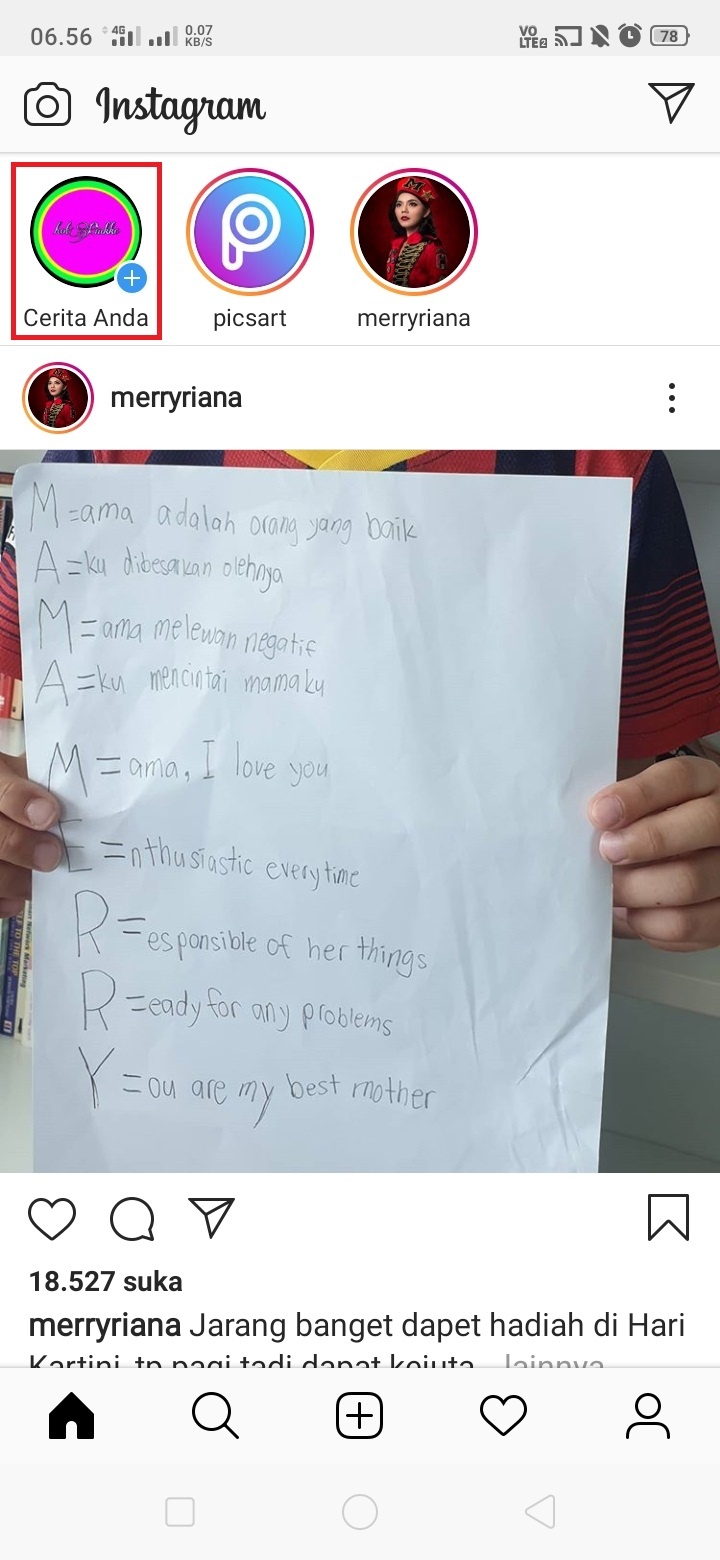 06.56 4G 0.07 KB/S VO LTE2 78
Instagram
Cerita Anda picsart merryriana
merryriana
M=ama adalah orang yang baik
A=ku dibesarkan olehnya
M=ama melewan negatif
A=ku mencintai mamaku
M=ama, I love you
E=nthusiastic everytime
R=esponsible of her things
R=eady for any problems
Y=ou are my best mother
18.527 suka
merryriana Jarang banget dapet hadiah di Hari
Kartini, tp pagi tadi dapat kejuta... lainnya